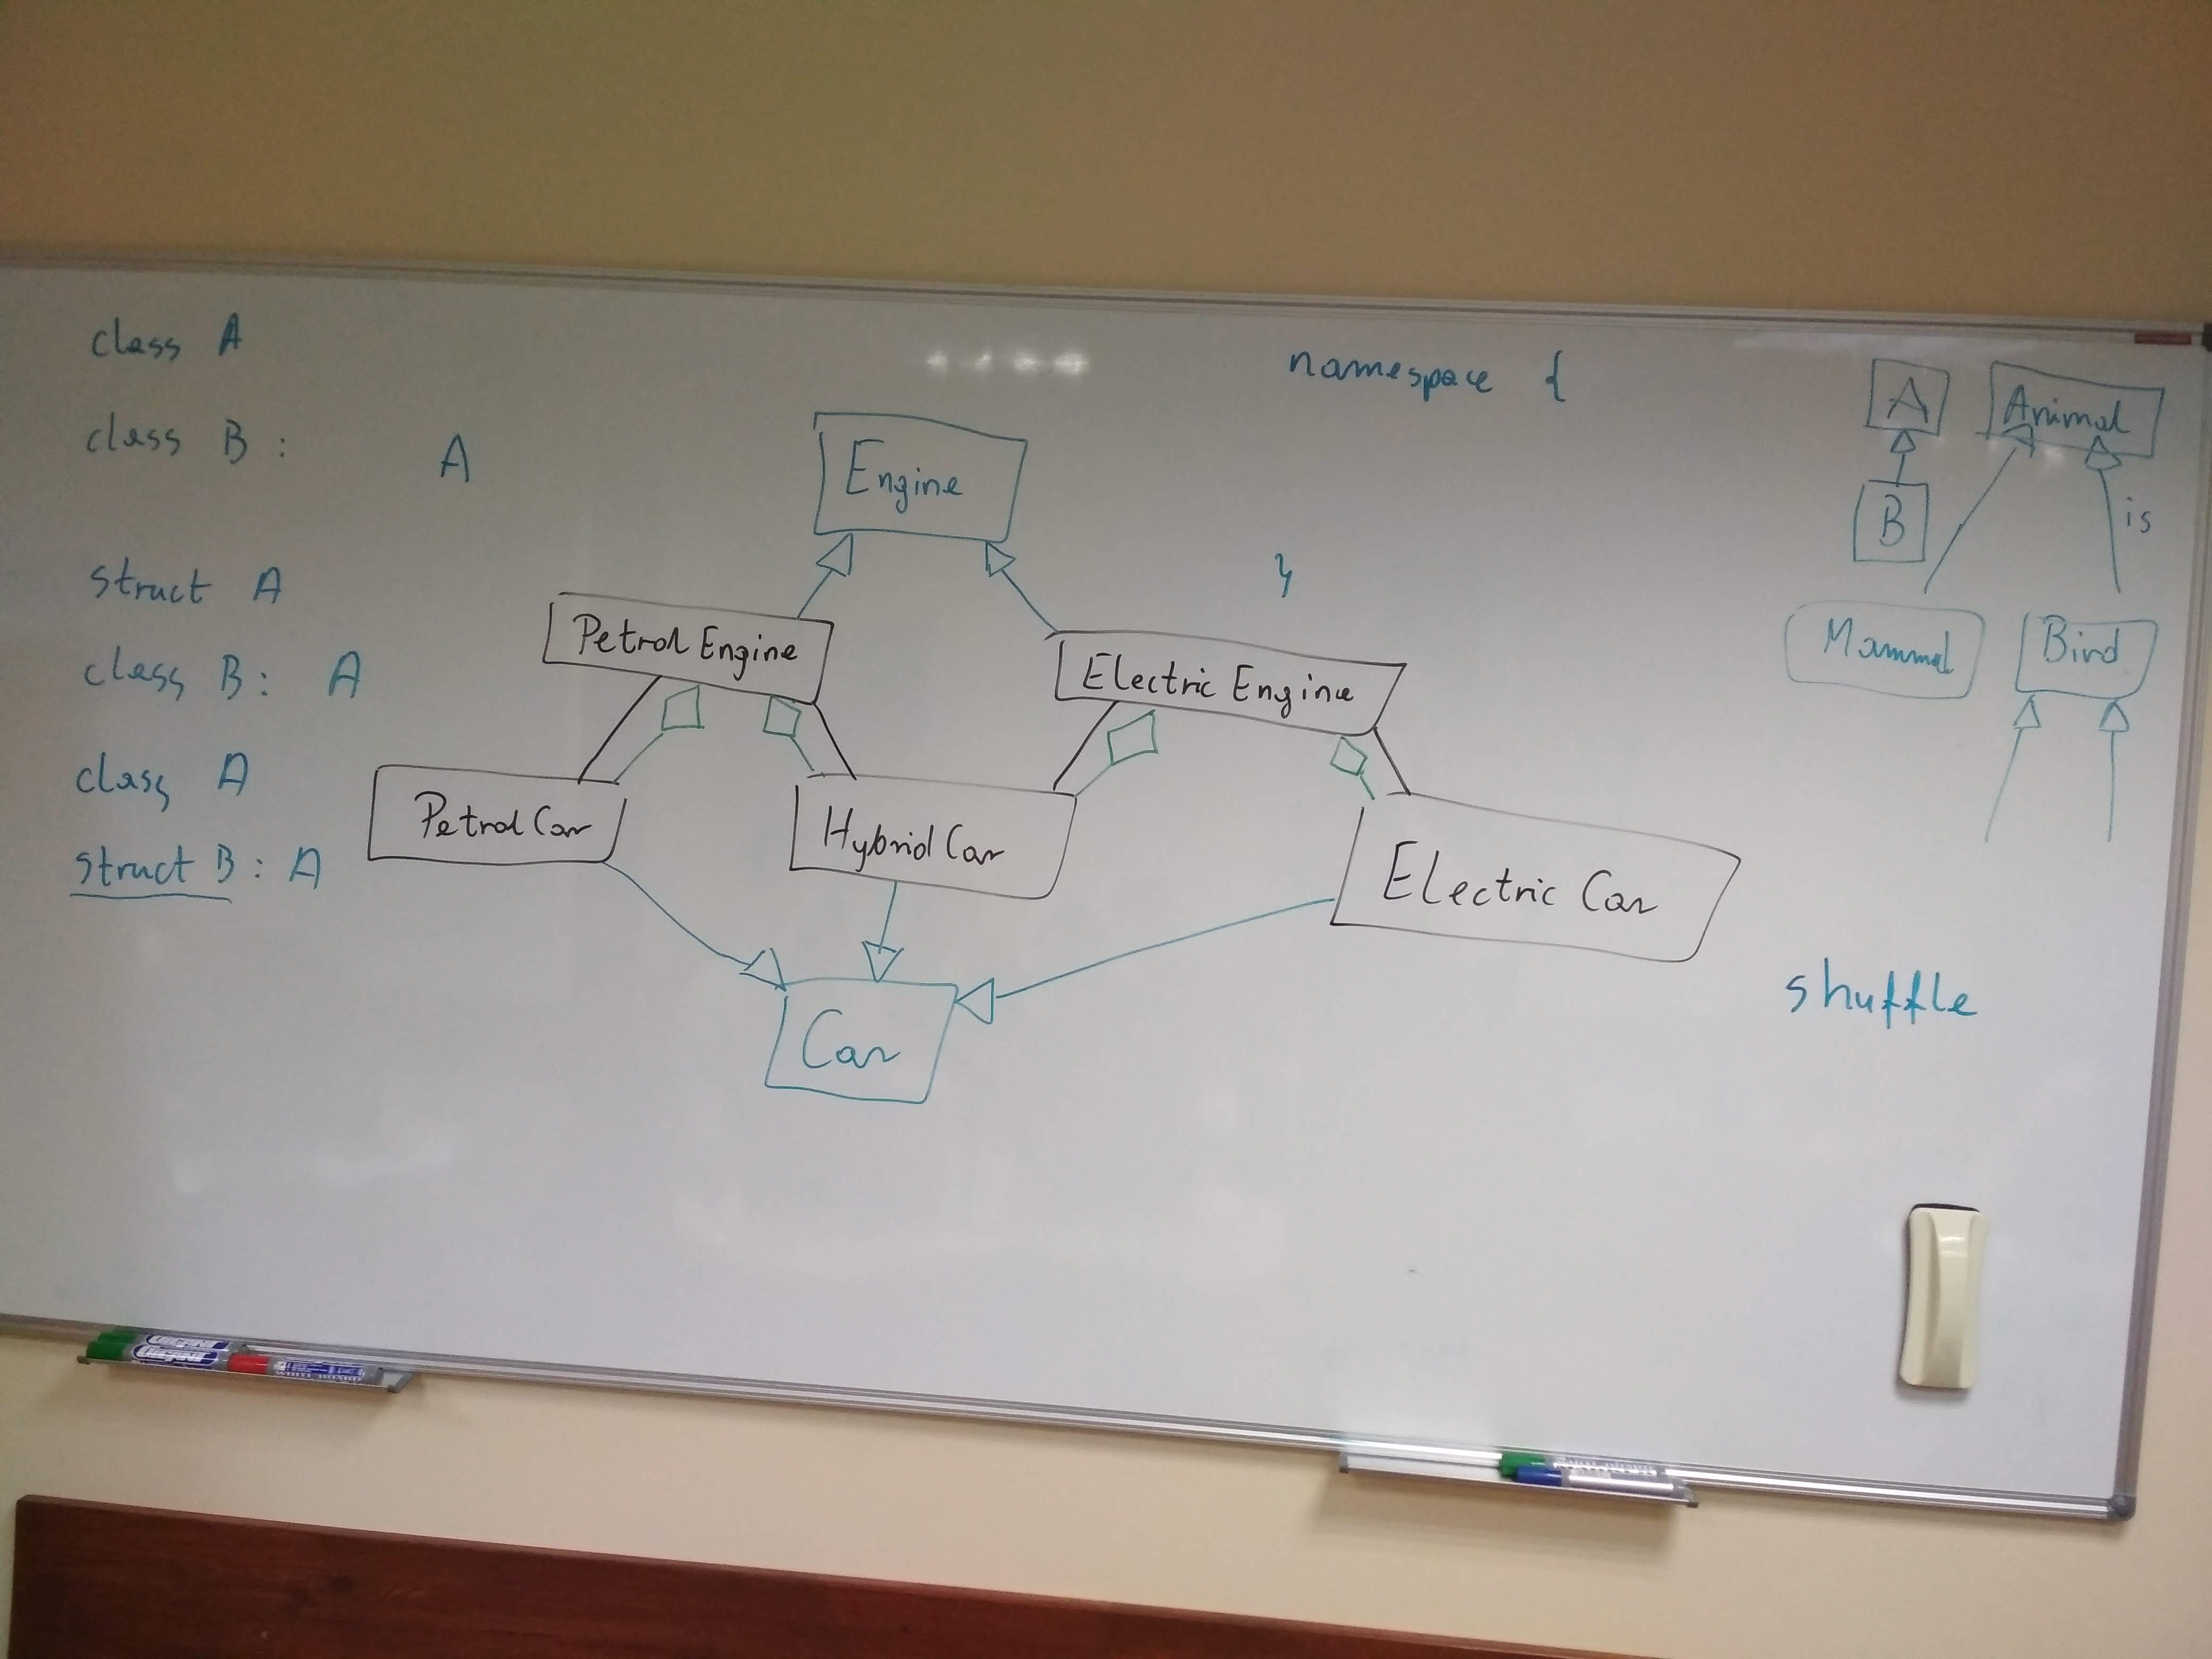 class A
class B : A
struct A
class B : A
class A
struct B : A
Engine
Petrol Engine
Electric Engine
Petrol Car
Hybrid Car
Electric Car
Car
namespace {
}
A
Animal
B
is
Mammal
Bird
shuffle